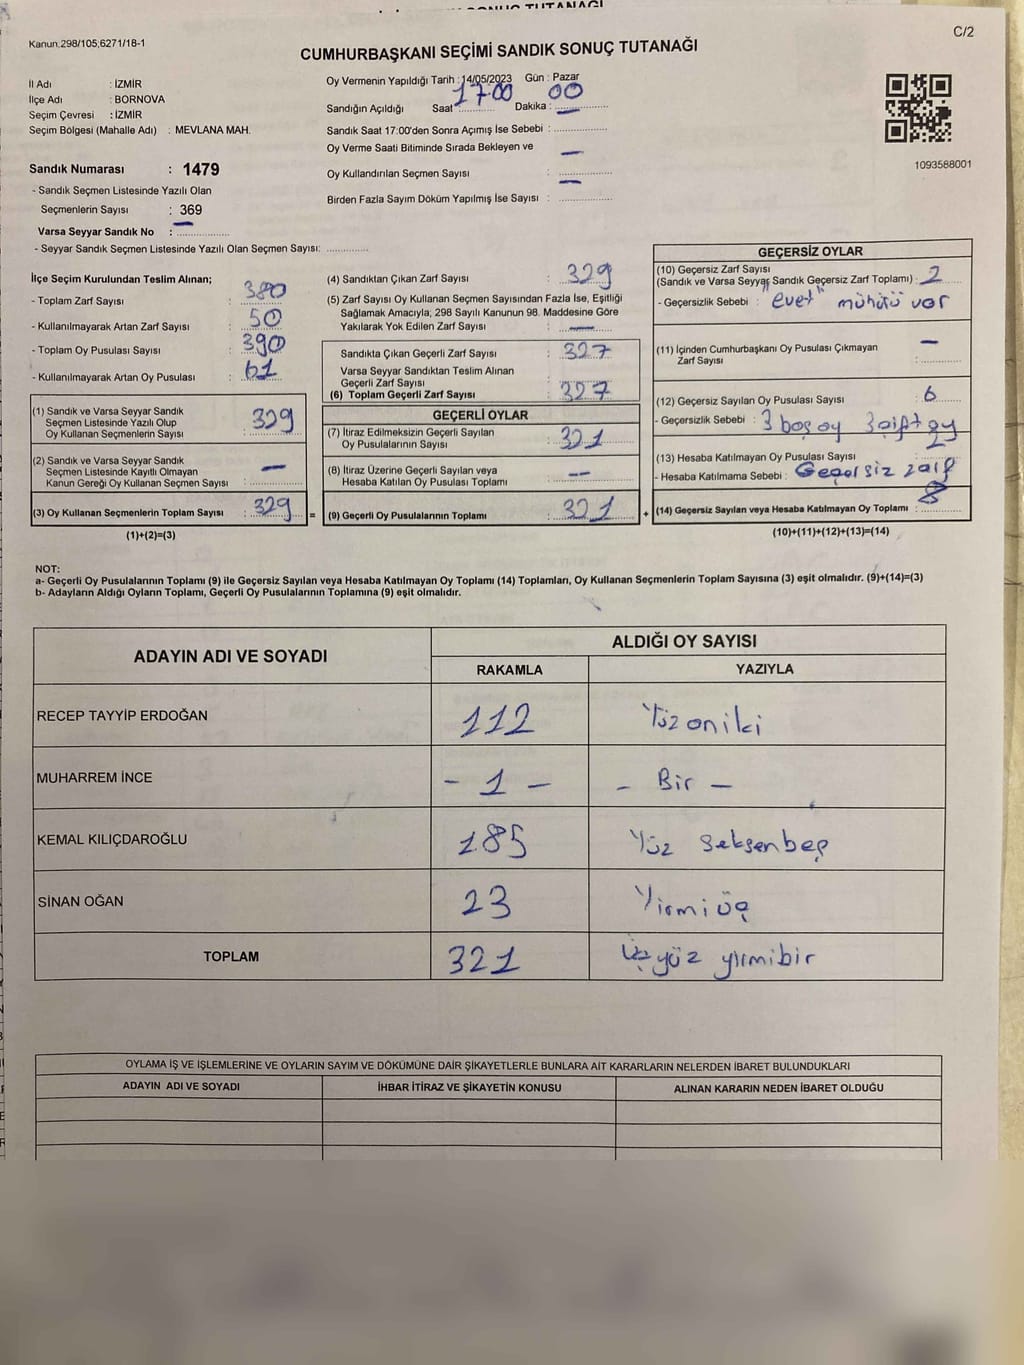 SONUÇ TUTANAĞI
Kanun.298/105;6271/18-1
C/2
CUMHURBAŞKANI SEÇİMİ SANDIK SONUÇ TUTANAĞI
İl Adı : İZMİR
İlçe Adı : BORNOVA
Seçim Çevresi : İZMİR
Seçim Bölgesi (Mahalle Adı) : MEVLANA MAH.
Sandık Numarası : 1479
- Sandık Seçmen Listesinde Yazılı Olan
Seçmenlerin Sayısı : 369
Varsa Seyyar Sandık No : —
- Seyyar Sandık Seçmen Listesinde Yazılı Olan Seçmen Sayısı:
Oy Vermenin Yapıldığı Tarih : 14/05/2023 Gün : Pazar
Sandığın Açıldığı Saat 17:00 Dakika : 00
Sandık Saat 17:00'den Sonra Açımış İse Sebebi : —
Oy Verme Saati Bitiminde Sırada Bekleyen ve
Oy Kullandırılan Seçmen Sayısı : —
Birden Fazla Sayım Döküm Yapılmış İse Sayısı : —
1093588001
İlçe Seçim Kurulundan Teslim Alınan;
- Toplam Zarf Sayısı : 380
- Kullanılmayarak Artan Zarf Sayısı : 50
- Toplam Oy Pusulası Sayısı : 390
- Kullanılmayarak Artan Oy Pusulası : 61
(1) Sandık ve Varsa Seyyar Sandık
Seçmen Listesinde Yazılı Olup
Oy Kullanan Seçmenlerin Sayısı : 329
(2) Sandık ve Varsa Seyyar Sandık
Seçmen Listesinde Kayıtlı Olmayan
Kanun Gereği Oy Kullanan Seçmen Sayısı : —
(3) Oy Kullanan Seçmenlerin Toplam Sayısı : 329
(1)+(2)=(3)
(4) Sandıktan Çıkan Zarf Sayısı : 329
(5) Zarf Sayısı Oy Kullanan Seçmen Sayısından Fazla İse, Eşitliği
Sağlamak Amacıyla; 298 Sayılı Kanunun 98. Maddesine Göre
Yakılarak Yok Edilen Zarf Sayısı : —
Sandıkta Çıkan Geçerli Zarf Sayısı : 327
Varsa Seyyar Sandıktan Teslim Alınan
Geçerli Zarf Sayısı
(6) Toplam Geçerli Zarf Sayısı : 327
GEÇERLİ OYLAR
(7) İtiraz Edilmeksizin Geçerli Sayılan
Oy Pusulalarının Sayısı : 321
(8) İtiraz Üzerine Geçerli Sayılan veya
Hesaba Katılan Oy Pusulası Toplamı : —
= (9) Geçerli Oy Pusulalarının Toplamı : 321
GEÇERSİZ OYLAR
(10) Geçersiz Zarf Sayısı
(Sandık ve Varsa Seyyar Sandık Geçersiz Zarf Toplamı) : 2
- Geçersizlik Sebebi : "evet" mühürü var
(11) İçinden Cumhurbaşkanı Oy Pusulası Çıkmayan
Zarf Sayısı : —
(12) Geçersiz Sayılan Oy Pusulası Sayısı : 6
- Geçersizlik Sebebi : 3 boş oy 3 çift oy
(13) Hesaba Katılmayan Oy Pusulası Sayısı : 2
- Hesaba Katılmama Sebebi : Geçersiz zarf
+ (14) Geçersiz Sayılan veya Hesaba Katılmayan Oy Toplamı : 8
(10)+(11)+(12)+(13)=(14)
NOT:
a- Geçerli Oy Pusulalarının Toplamı (9) ile Geçersiz Sayılan veya Hesaba Katılmayan Oy Toplamı (14) Toplamları, Oy Kullanan Seçmenlerin Toplam Sayısına (3) eşit olmalıdır. (9)+(14)=(3)
b- Adayların Aldığı Oyların Toplamı, Geçerli Oy Pusulalarının Toplamına (9) eşit olmalıdır.
ADAYIN ADI VE SOYADI
ALDIĞI OY SAYISI
RAKAMLA YAZIYLA
RECEP TAYYİP ERDOĞAN 112 Yüz oniki
MUHARREM İNCE - 1 - - Bir -
KEMAL KILIÇDAROĞLU 185 Yüz seksenbeş
SİNAN OĞAN 23 Yirmi üç
TOPLAM 321 Üçyüz yirmibir
OYLAMA İŞ VE İŞLEMLERİNE VE OYLARIN SAYIM VE DÖKÜMÜNE DAİR ŞİKAYETLERLE BUNLARA AİT KARARLARIN NELERDEN İBARET BULUNDUKLARI
ADAYIN ADI VE SOYADI İHBAR İTİRAZ VE ŞİKAYETİN KONUSU ALINAN KARARIN NEDEN İBARET OLDUĞU